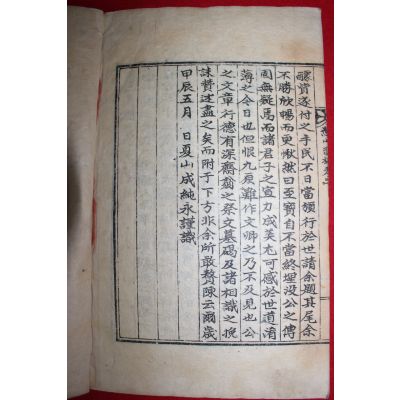 醵資遂付之手民不日當頒行於世請余題其尾余
不勝欣暢而更愀然曰至寶自不當終埋沒公之傳
固無疑焉而諸君子之宣力成美尤可感於世道淆
漓之今日也但恨九原難作文卿之乃不及見也公
之文章行德有深齋翁之祭文墓碣及諸相識之挽
誄贊述盡之矣而附于下方非余所敢贅陳云爾歲
甲辰五月 日夏山成純永謹識